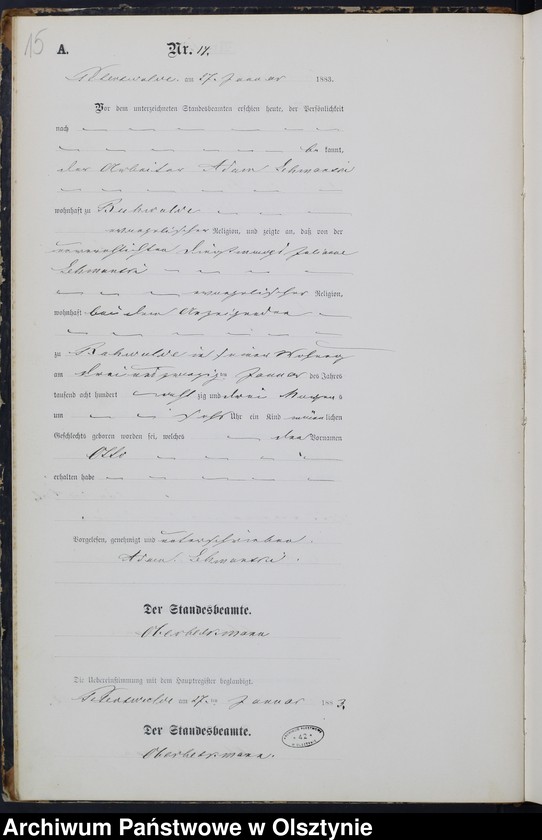 15
A. Nr. 14.
am 27. Januar 1883.
Vor dem unterzeichneten Standesbeamten erschien heute, der Persönlichkeit
nach
be kannt,
der Arbeiter Adam
wohnhaft zu
evangelischer Religion, und zeigte an, daß von der
unverehelichten Dienstmagd
evangelischer Religion,
wohnhaft bei dem Anzeigenden
zu in seiner Wohnung
am drei und zwanzigsten Januar des Jahres
tausend acht hundert acht zig und drei Morgens
um sechs Uhr ein Kind männlichen
Geschlechts geboren worden sei, welches den Vornamen
Otto
erhalten habe
Vorgelesen, genehmigt und unterschrieben.
Adam
Der Standesbeamte.
Die Uebereinstimmung mit dem Hauptregister beglaubigt.
am 27. ten Januar 1883.
Der Standesbeamte.
42
Archiwum Państwowe w Olsztynie